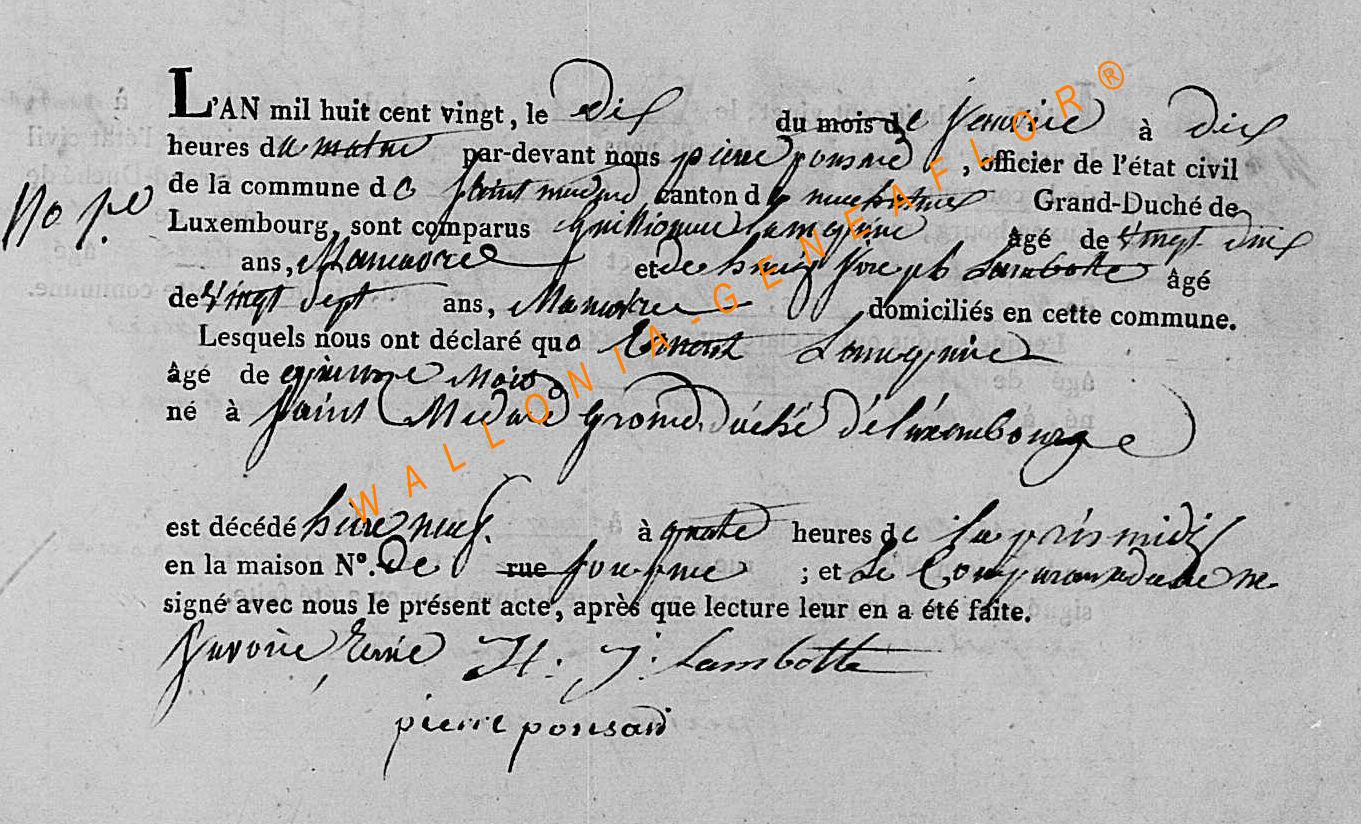 L'AN mil huit cent vingt, le Dix du mois de Janvie à dix
heures du matin par-devant nous pierre ponsard, officier de l'état civil
de la commune de saint medard canton de neuchateau Grand-Duché de
No 1er
Luxembourg, sont comparus âgé de vingt Dix
ans, Manuvre et de henry Joseph Lambotte âgé
de vingt Sept ans, Manuvre domiciliés en cette commune.
Lesquels nous ont déclaré que
âgé de quinze Mois
né à Saint Medard Grand Duché de Luxembourge
est décédé hire neuf. à quatre heures de la prés midi
en la maison N°. De rue son pere ; et Le Comparant declare ne
signé avec nous le présent acte, après que lecture leur en a été faite.
H. J. Lambotte
pierre ponsard
WALLONIA-GENEAFLOR®